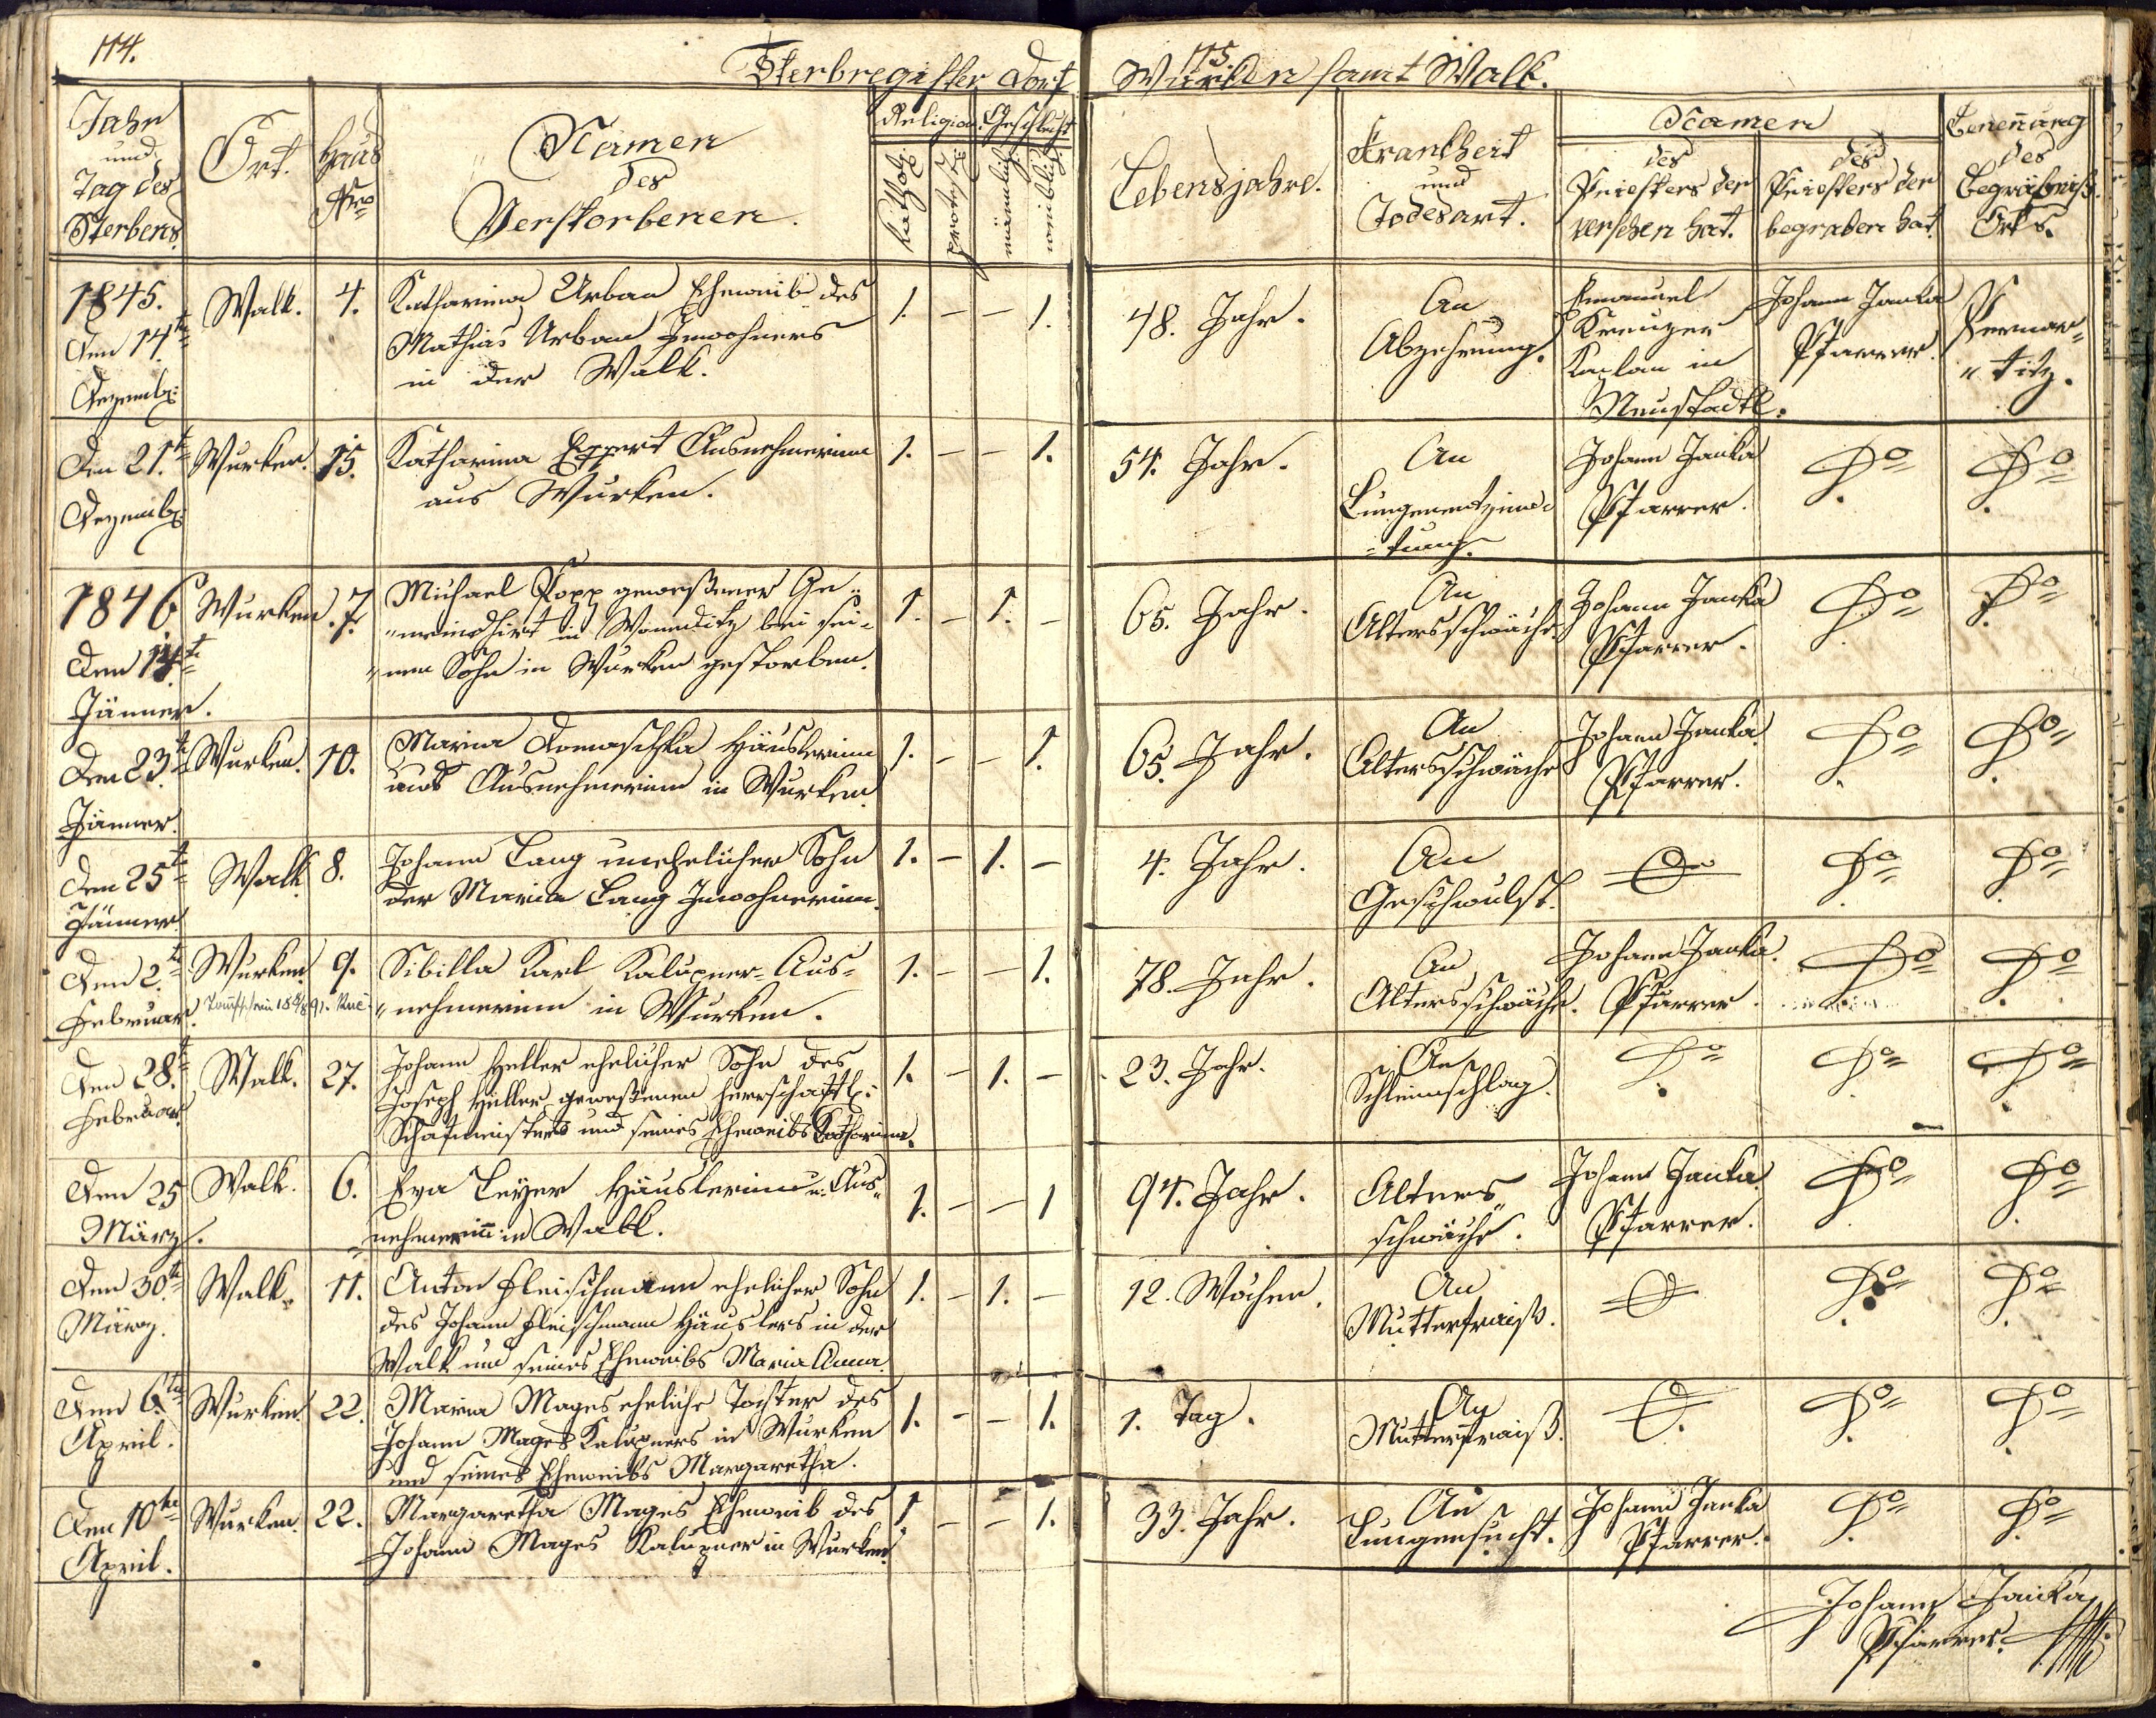 114.
115.
Sterbregister Dorf Wurken samt Walk.
Jahr und Tag des Sterbens
Ort.
Haus Nro
Namen des Verstorbenen.
Religion
kathol:
protest:
Geschlecht
männlich
weiblich
Lebensjahre.
Krankheit und Todesart.
Namen
des Priesters der versehen hat.
des Priesters der begraben hat.
Benen̄ung des Begräbniß Orts.
1845. Den 14t Dezemb: Walk. 4. Katharina Urban Eheweib des
Mathias Urban Inwohners
in der Walk. 1. – – 1. 48. Jahr. An Abzehrung. Emanuel Kreuzer Kaplan in Neustadtl. Johann Janka Pfarrer Pernar= "titz.
Den 21.t Dezemb: Wurken. 15. Katharina Eppert Ausnehmerinn
aus Wurken. 1. – – 1. 54. Jahr. An Lungenentzünd= =tung. Johann Janka Pfarrer. Do Do
1846 Den 14.t Jänner. Wurken. 7. Michael Popp geweßener Ge=
"meindhirt in bei sei=
"nem Sohn in Wurken gestorben. 1. – 1. – 65. Jahr. An Altersschwäche Johann Janka Pfarrer. Do Do
Den 23.t Jänner. Wurken. 10. Maria Domaschka Häuslerinn
und Ausnehmerinn in Wurken. 1. – – 1. 65. Jahr. An Altersschwäche Johann Janka Pfarrer. Do Do
Den 25t Jänner Walk 8. Johann Lang unehelicher Sohn
der Maria Lang Inwohnerinn. 1. – 1. – 4. Jahr. An Geschwulst. Do Do
Den 2.t Februar. Wurken 9. Sibilla Karl Kalupner=Aus=
"nehmerinn in Wurken. 1. – – 1. 78. Jahr. An Altersschwäche. Johann Janka. Pfarrer. Do Do
Den 28.t Februar. Walk. 27. Johann Heller ehelicher Sohn des
Joseph Heller geweßenen herrschaftl:
Schafmeisters und seines Eheweibs Katharina. 1. – 1. – 23. Jahr. An Schleimschlag. Do Do Do
Den 25 März. Walk. 6. Eva Leyer Häuslerinn u. Aus=
=nehmerin̄ in Walk. 1. – – 1 94. Jahr. Alters" schwäche. Johann Janka Pfarrer. Do Do
Den 30.t März. Walk. 11. Anton Fleischmann ehelicher Sohn
des Johann Fleischmann Häuslers in der
Walk und seines Eheweibs Maria Anna. 1. – 1. – 12. Wochen. An Mutterfraiß. Do Do
Den 6.ten April. Wurken. 22. Maria Mages eheliche Tochter des
Johann Mages Kalupners in Wurken
und seines Eheweibs Margaretha. 1. – – 1. 1. Tag. An Mutterfraiß. Do Do
Den 10ten April. Wurken. 22. Margaretha Mages Eheweib des
Johann Mages Kalupner in Wurken. 1 – – 1. 33. Jahr. An Lungensucht. Johann Janka Pfarrer. Do Do
Johann Janka
Pfarrer.